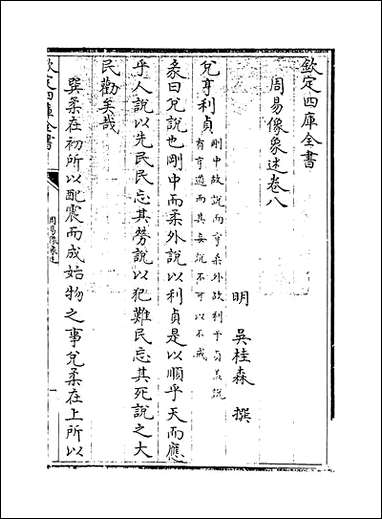 欽定四庫全書
周易像象述卷八
明 吳桂森 撰
兌亨利貞 剛中故說而亨柔外故利于貞蓋說
有亨道而其妄說不可以不戒
彖曰兌說也剛中而柔外說以利貞是以順乎天而應
乎人說以先民民忘其勞說以犯難民忘其死說之大
民勸矣哉
巽柔在初所以配震而成始物之事兌柔在上所以
欽定四庫全書
周易像象述
一